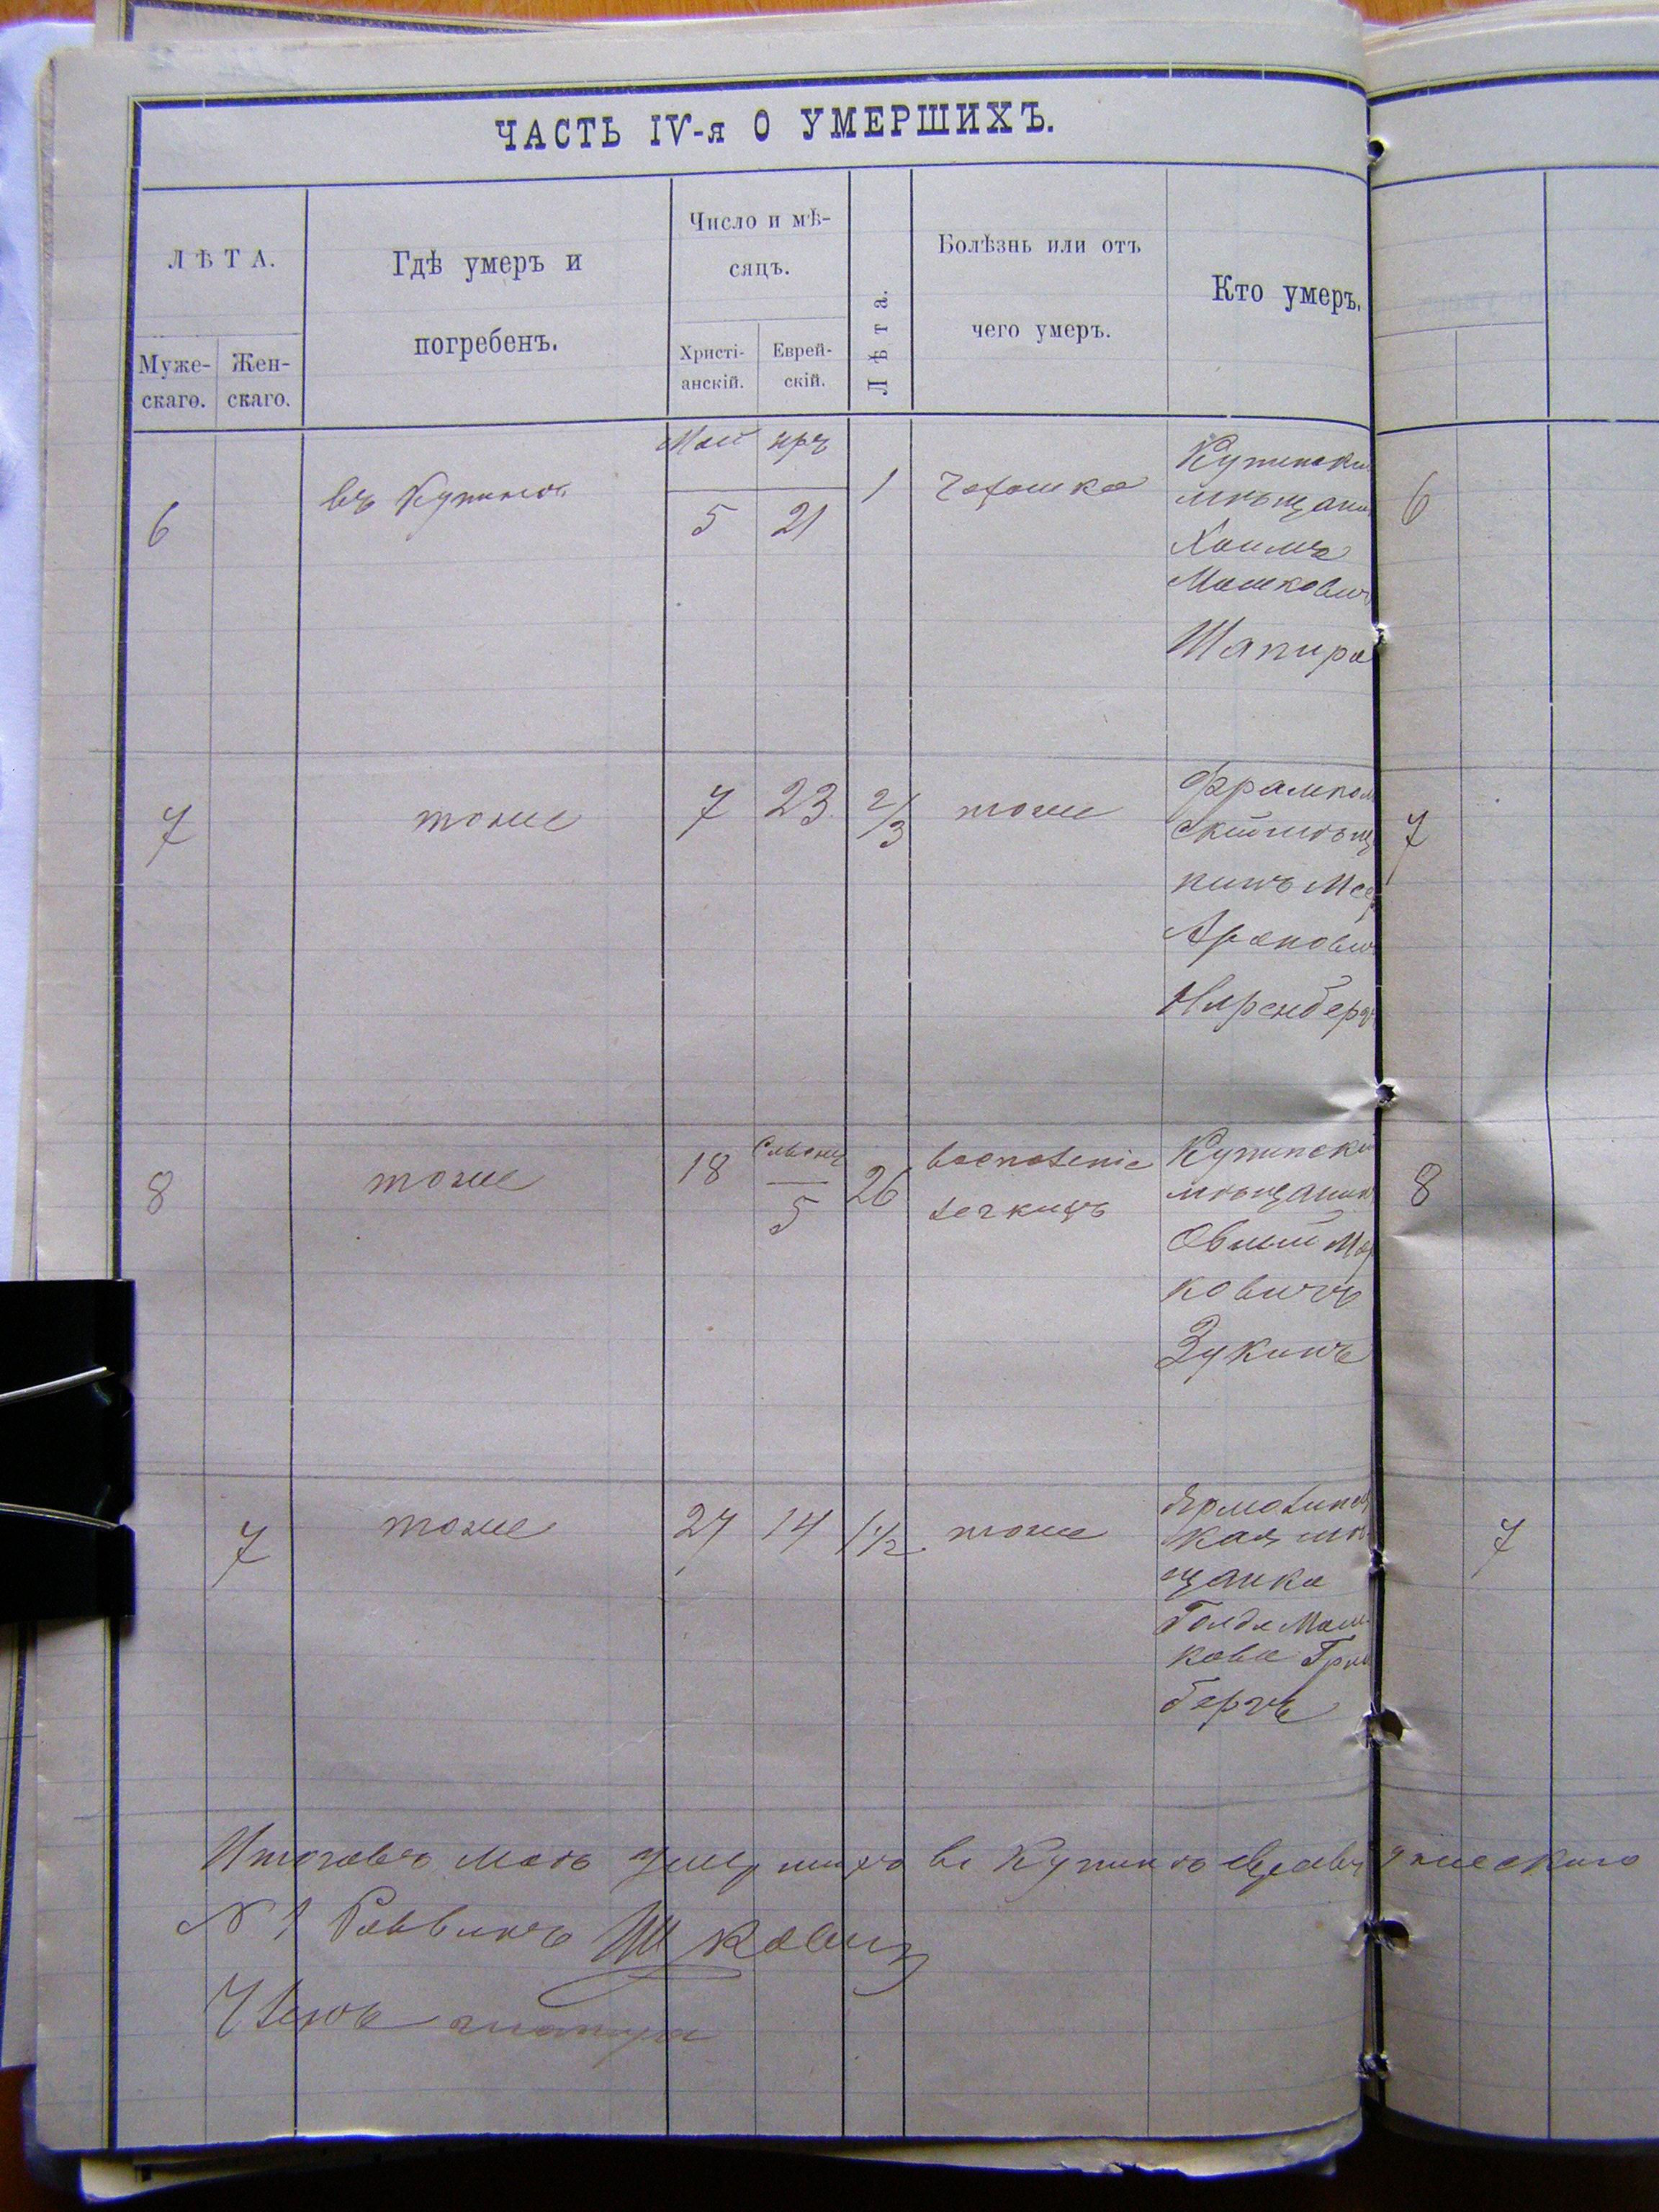 ЧАСТЬ IV-я О УМЕРШИХЪ.
ЛѢТА.
Муже-
скаго.
Жен-
скаго.
Гдѣ умеръ и
погребенъ.
Число и мѣ-
сяцъ.
Христі-
анскій.
Еврей-
скій.
Лѣта.
Болѣзнь или отъ
чего умеръ.
Кто умеръ.
6
въ Купинѣ
Май
5
21
1
Чахотка
Купински
мѣщани
Хаимъ
Мошкович
Шапира
6
7
тоже
7
23
2/3
тоже
Фрампол
скій мѣщ
нинъ Мее
Ароновичъ
Ниренберг
7
8
тоже
18
5
26
воспаленіе
легкихъ
Купински
мѣщанин
Овший Мо
ковичъ
Зукинъ
8
7
тоже
27
14
1 1/2
тоже
Ярмолинец
кая мѣ
щанка
Голда Мош
кова Грин
бергъ
7
умершихъ въ Купинѣ
№ 1 Раввинъ
Членъ